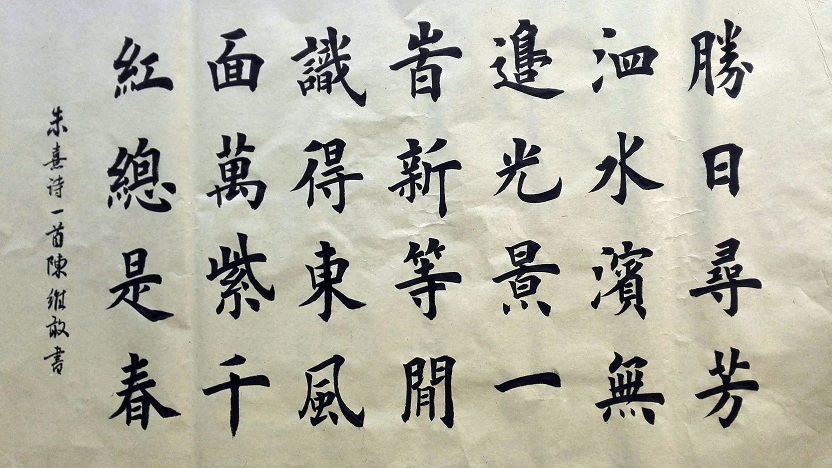 勝日尋芳
泗水濱無
邉光景一
旹新等閒
識得東風
面萬紫千
紅總是春
朱熹诗一首陳維敢書